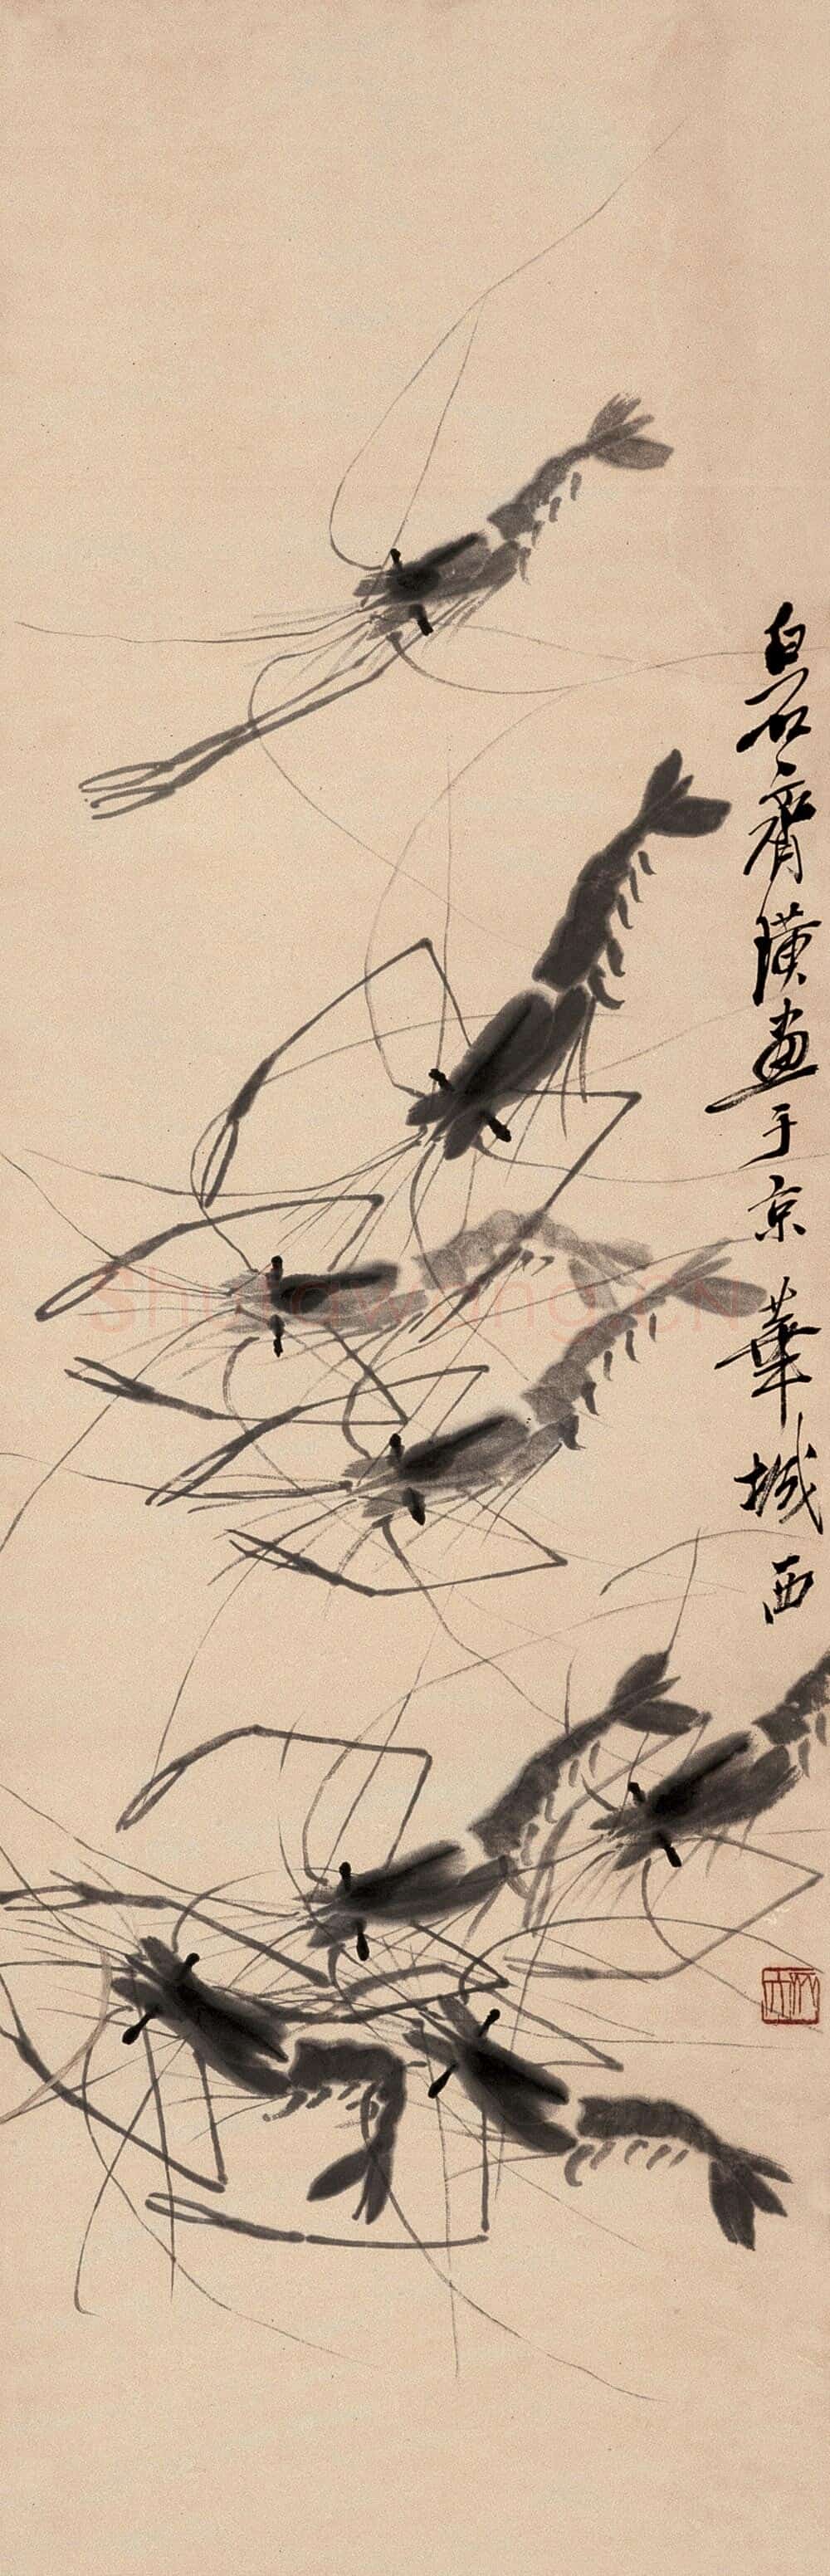 白石齊璜畫于京華城西
木人